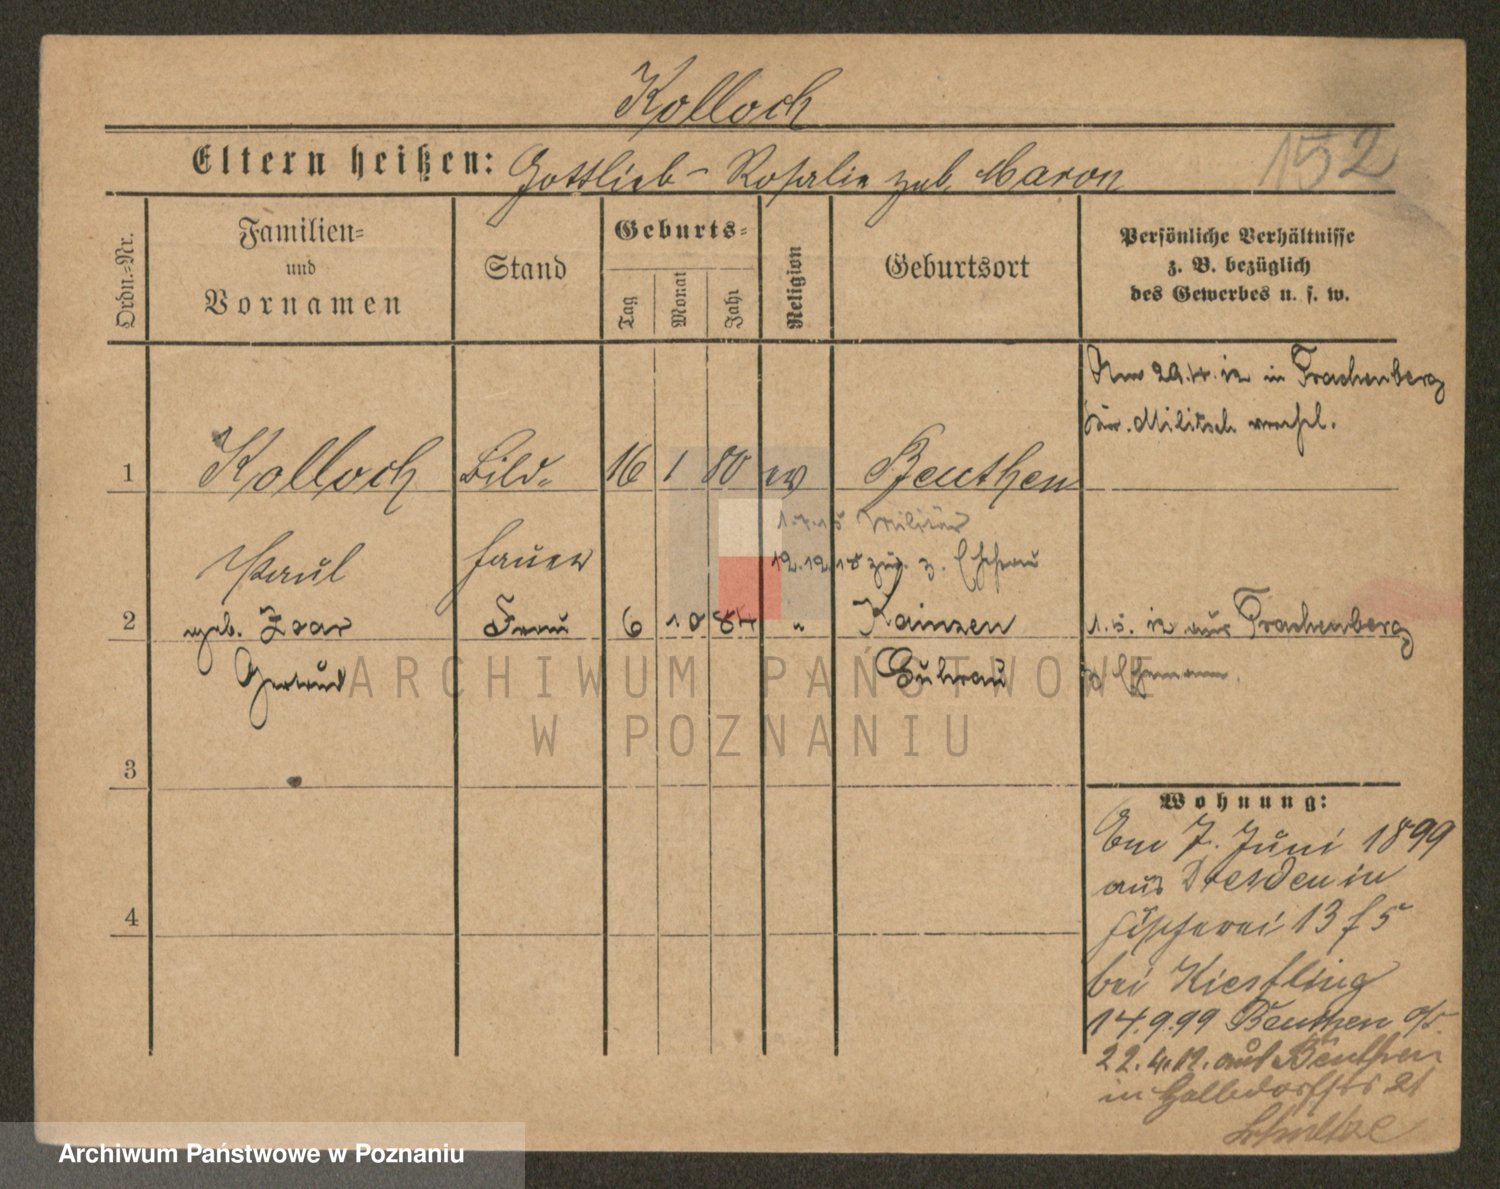 Kolloch
152
Eltern heißen: Gottlieb - Rosalie geb. Maron
Ordn.=Nr.
Familien=
und
Vornamen
Stand
Geburts=
Tag
Monat
Jahr
Religion
Geburtsort
Persönliche Verhältnisse
z. B. bezüglich
des Gewerbes u. s. w.
Am 29.4.12 in Trachenberg
Kr. Militsch verehl.
1 Kolloch Bild= 16 1 80 ev Beuthen
1.7.15 Militär
Paul hauer 12.12.18 zur. z. Ehefrau
2 geb. Frau 6 10 84 " Kainzen 1.5.12 aus Trachenberg
Gertrud Guhrau z. Ehemann.
3
4
Wohnung:
Am 7. Juni 1899
aus Dresden in
Fischerei 13
bei Kiesling
14.9.99 Beuthen O/S.
22.4.12. aus Beuthen
in 21
Schultze
ARCHIWUM PAŃSTWOWE
W POZNANIU
Archiwum Państwowe w Poznaniu